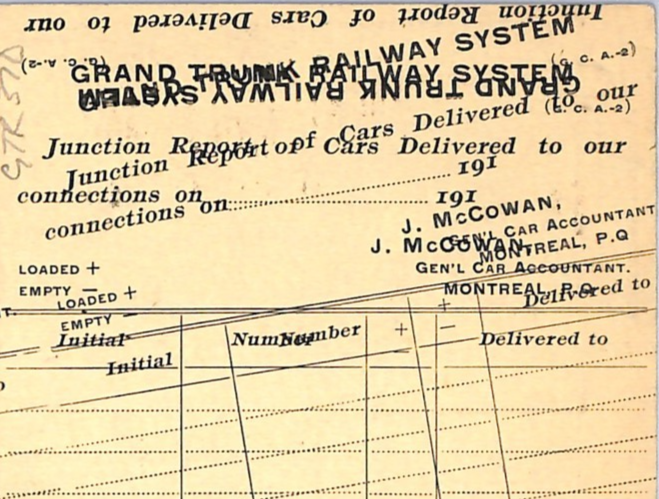 Junction Report of Cars Delivered to our
(G. C. A.-2)
GRAND TRUNK RAILWAY SYSTEM
(G. C. A.-2)
GRAND TRUNK RAILWAY SYSTEM
GRAND TRUNK RAILWAY SYSTEM
(G. C. A.-2)
Junction Report of Cars Delivered to our
Junction Report of Cars Delivered to our
connections on 191
connections on 191
J. McCOWAN,
GEN'L CAR ACCOUNTANT
MONTREAL, P.Q
J. McCOWAN,
GEN'L CAR ACCOUNTANT.
MONTREAL, P.Q.
LOADED +
EMPTY —
LOADED +
EMPTY —
Delivered to
Initial Number + — Delivered to
Initial Number +